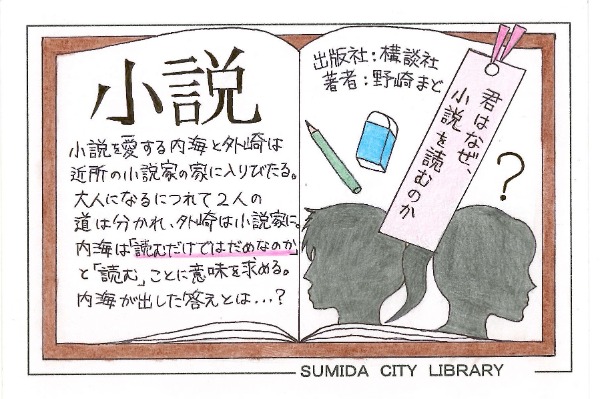 小説
小説を愛する内海と外崎は
近所の小説家の家に入りびたる。
大人になるにつれて2人の
道は分かれ、外崎は小説家に。
内海は「読むだけではだめなのか」
と「読む」ことに意味を求める。
内海が出した答えとは…?
出版社:構談社
著者:野崎まど
君はなぜ、
小説を読むのか
?
SUMIDA CITY LIBRARY